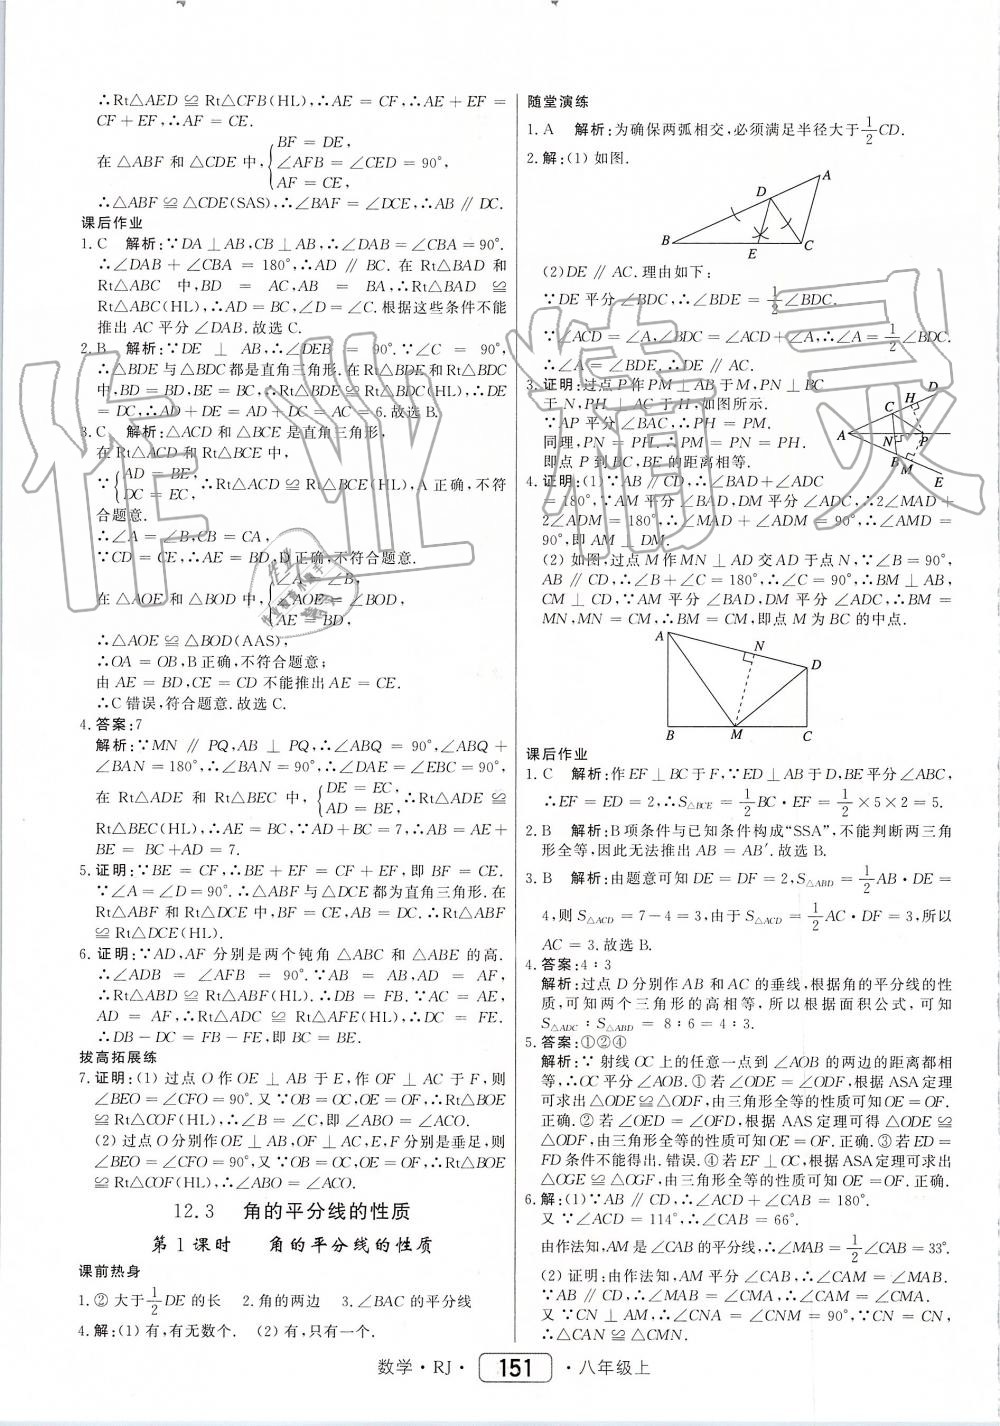 ∴Rt△AED ≌ Rt△CFB(HL),∴AE = CF,∴AE + EF =
CF + EF,∴AF = CE.
在 △ABF 和 △CDE 中,{BF = DE,
∠AFB = ∠CED = 90°,
AF = CE,
∴△ABF ≌ △CDE(SAS),∴∠BAF = ∠DCE,∴AB ∥ DC.
课后作业
1. C 解析:∵DA ⊥ AB,CB ⊥ AB,∴∠DAB = ∠CBA = 90°.
∴∠DAB + ∠CBA = 180°,∴AD ∥ BC. 在 Rt△BAD 和
Rt△ABC 中,BD = AC,AB = BA,∴Rt△BAD ≌
Rt△ABC(HL),∴AD = BC,∠D = ∠C. 根据这些条件不能
推出 AC 平分 ∠DAB. 故选 C.
2. B 解析:∵DE ⊥ AB,∴∠DEB = 90°.∵∠C = 90°,
∴△BDE 与 △BDC 都是直角三角形. 在 Rt△BDE 和 Rt△BDC
中,BD = BD,BE = BC,∴Rt△BDE ≌ Rt△BDC(HL),∴DE
= DC,∴AD + DE = AD + DC = AC = 6. 故选 B.
3. C 解析:△ACD 和 △BCE 是直角三角形,
在 Rt△ACD 和 Rt△BCE 中,
∵{AD = BE,
DC = EC,∴Rt△ACD ≌ Rt△BCE(HL),A 正确,不符
合题意.
∴∠A = ∠B,CB = CA,
∵CD = CE,∴AE = BD,D 正确,不符合题意.
在 △AOE 和 △BOD 中,{∠A = ∠B,
∠AOE = ∠BOD,
AE = BD,
∴△AOE ≌ △BOD(AAS),
∴OA = OB,B 正确,不符合题意;
由 AE = BD,CE = CD 不能推出 AE = CE.
∴C 错误,符合题意. 故选 C.
4. 答案:7
解析:∵MN ∥ PQ,AB ⊥ PQ,∴∠ABQ = 90°,∠ABQ +
∠BAN = 180°,∴∠BAN = 90°,∴∠DAE = ∠EBC = 90°,
在 Rt△ADE 和 Rt△BEC 中,{DE = EC,
AD = BE,∴Rt△ADE ≌
Rt△BEC(HL),∴AE = BC,∵AD + BC = 7,∴AB = AE +
BE = BC + AD = 7.
5. 证明:∵BE = CF,∴BE + EF = CF + EF,即 BF = CE.
∵∠A = ∠D = 90°,∴△ABF 与 △DCE 都为直角三角形. 在
Rt△ABF 和 Rt△DCE 中,BF = CE,AB = DC.∴Rt△ABF
≌ Rt△DCE(HL).
6. 证明:∵AD,AF 分别是两个钝角 △ABC 和 △ABE 的高.
∴∠ADB = ∠AFB = 90°.∵AB = AB,AD = AF,
∴Rt△ABD ≌ Rt△ABF(HL).∴DB = FB.∵AC = AE,
AD = AF,∴Rt△ADC ≌ Rt△AFE(HL).∴DC = FE.
∴DB − DC = FB − FE,即 BC = BE.
拔高拓展练
7. 证明:(1) 过点 O 作 OE ⊥ AB 于 E,作 OF ⊥ AC 于 F,则
∠BEO = ∠CFO = 90°. 又 ∵OB = OC,OE = OF,∴Rt△BOE
≌ Rt△COF(HL),∴∠B = ∠C,即 ∠ABO = ∠ACO.
(2) 过点 O 分别作 OE ⊥ AB,OF ⊥ AC,E,F 分别是垂足,则
∠BEO = ∠CFO = 90°,又 ∵OB = OC,OE = OF,∴Rt△BOE
≌ Rt△COF(HL),∴∠ABO = ∠ACO.
12.3 角的平分线的性质
第 1 课时 角的平分线的性质
课前热身
1. ② 大于 1/2 DE 的长 2. 角的两边 3. ∠BAC 的平分线
4. 解:(1) 有,有无数个. (2) 有,只有一个.
随堂演练
1. A 解析:为确保两弧相交,必须满足半径大于 1/2 CD.
2. 解:(1) 如图.
A
D
B
E
C
(2)DE ∥ AC. 理由如下:
∵DE 平分 ∠BDC,∴∠BDE = 1/2 ∠BDC.
∵∠ACD = ∠A,∠BDC = ∠ACD + ∠A,∴∠A = 1/2 ∠BDC.
∴∠A = ∠BDE.∴DE ∥ AC.
3. 证明:过点 P 作 PM ⊥ AB 于 M,PN ⊥ BC
于 N,PH ⊥ AC 于 H,如图所示.
∵AP 平分 ∠BAC,∴PH = PM.
同理,PN = PH,∴PM = PN = PH.
即点 P 到 BC,BE 的距离相等.
D
H
C
A
N
P
B
M
E
4. 证明:(1)∵AB ∥ CD,∴∠BAD + ∠ADC
= 180°,∵AM 平分 ∠BAD,DM 平分 ∠ADC,∴2∠MAD +
2∠ADM = 180°,∴∠MAD + ∠ADM = 90°,∴∠AMD =
90°,即 AM ⊥ DM.
(2) 如图,过点 M 作 MN ⊥ AD 交 AD 于点 N,∵∠B = 90°,
AB ∥ CD,∴∠B + ∠C = 180°,∴∠C = 90°,∴BM ⊥ AB,
CM ⊥ CD,∵AM 平分 ∠BAD,DM 平分 ∠ADC,∴BM =
MN,MN = CM,∴BM = CM,即点 M 为 BC 的中点.
A
N
D
B
M
C
课后作业
1. C 解析:作 EF ⊥ BC 于 F,∵ED ⊥ AB 于 D,BE 平分 ∠ABC,
∴EF = ED = 2,∴S△BCE = 1/2 BC · EF = 1/2 × 5 × 2 = 5.
2. B 解析:B 项条件与已知条件构成“SSA”,不能判断两三角
形全等,因此无法推出 AB = AB′. 故选 B.
3. B 解析:由题意可知 DE = DF = 2,S△ABD = 1/2 AB · DE =
4,则 S△ACD = 7 − 4 = 3,由于 S△ACD = 1/2 AC · DF = 3,所以
AC = 3. 故选 B.
4. 答案:4 : 3
解析:过点 D 分别作 AB 和 AC 的垂线,根据角的平分线的性
质,可知两个三角形的高相等,所以根据面积公式,可知
S△ADC : S△ABD = 8 : 6 = 4 : 3.
5. 答案:①②④
解析:∵ 射线 OC 上的任意一点到 ∠AOB 的两边的距离都相
等,∴OC 平分 ∠AOB. ① 若 ∠ODE = ∠ODF,根据 ASA 定理
可求出 △ODE ≌ △ODF,由三角形全等的性质可知 OE = OF.
正确. ② 若 ∠OED = ∠OFD,根据 AAS 定理可得 △ODE ≌
△ODF,由三角形全等的性质可知 OE = OF. 正确. ③ 若 ED =
FD 条件不能得出. 错误. ④ 若 EF ⊥ OC,根据 ASA 定理可求出
△OGE ≌ △OGF,由三角形全等的性质可知 OE = OF. 正确.
6. 解:(1)∵AB ∥ CD,∴∠ACD + ∠CAB = 180°.
又 ∵∠ACD = 114°,∴∠CAB = 66°.
由作法知,AM 是 ∠CAB 的平分线,∴∠MAB = 1/2 ∠CAB = 33°.
(2) 证明:由作法知,AM 平分 ∠CAB,∴∠CAM = ∠MAB.
∵AB ∥ CD,∴∠MAB = ∠CMA,∴∠CAM = ∠CMA.
又 ∵CN ⊥ AM,∴∠CNA = ∠CNM = 90°. 又 ∵CN = CN,
∴△CAN ≌ △CMN.
数学 · RJ · 151 · 八年级上
作业精灵